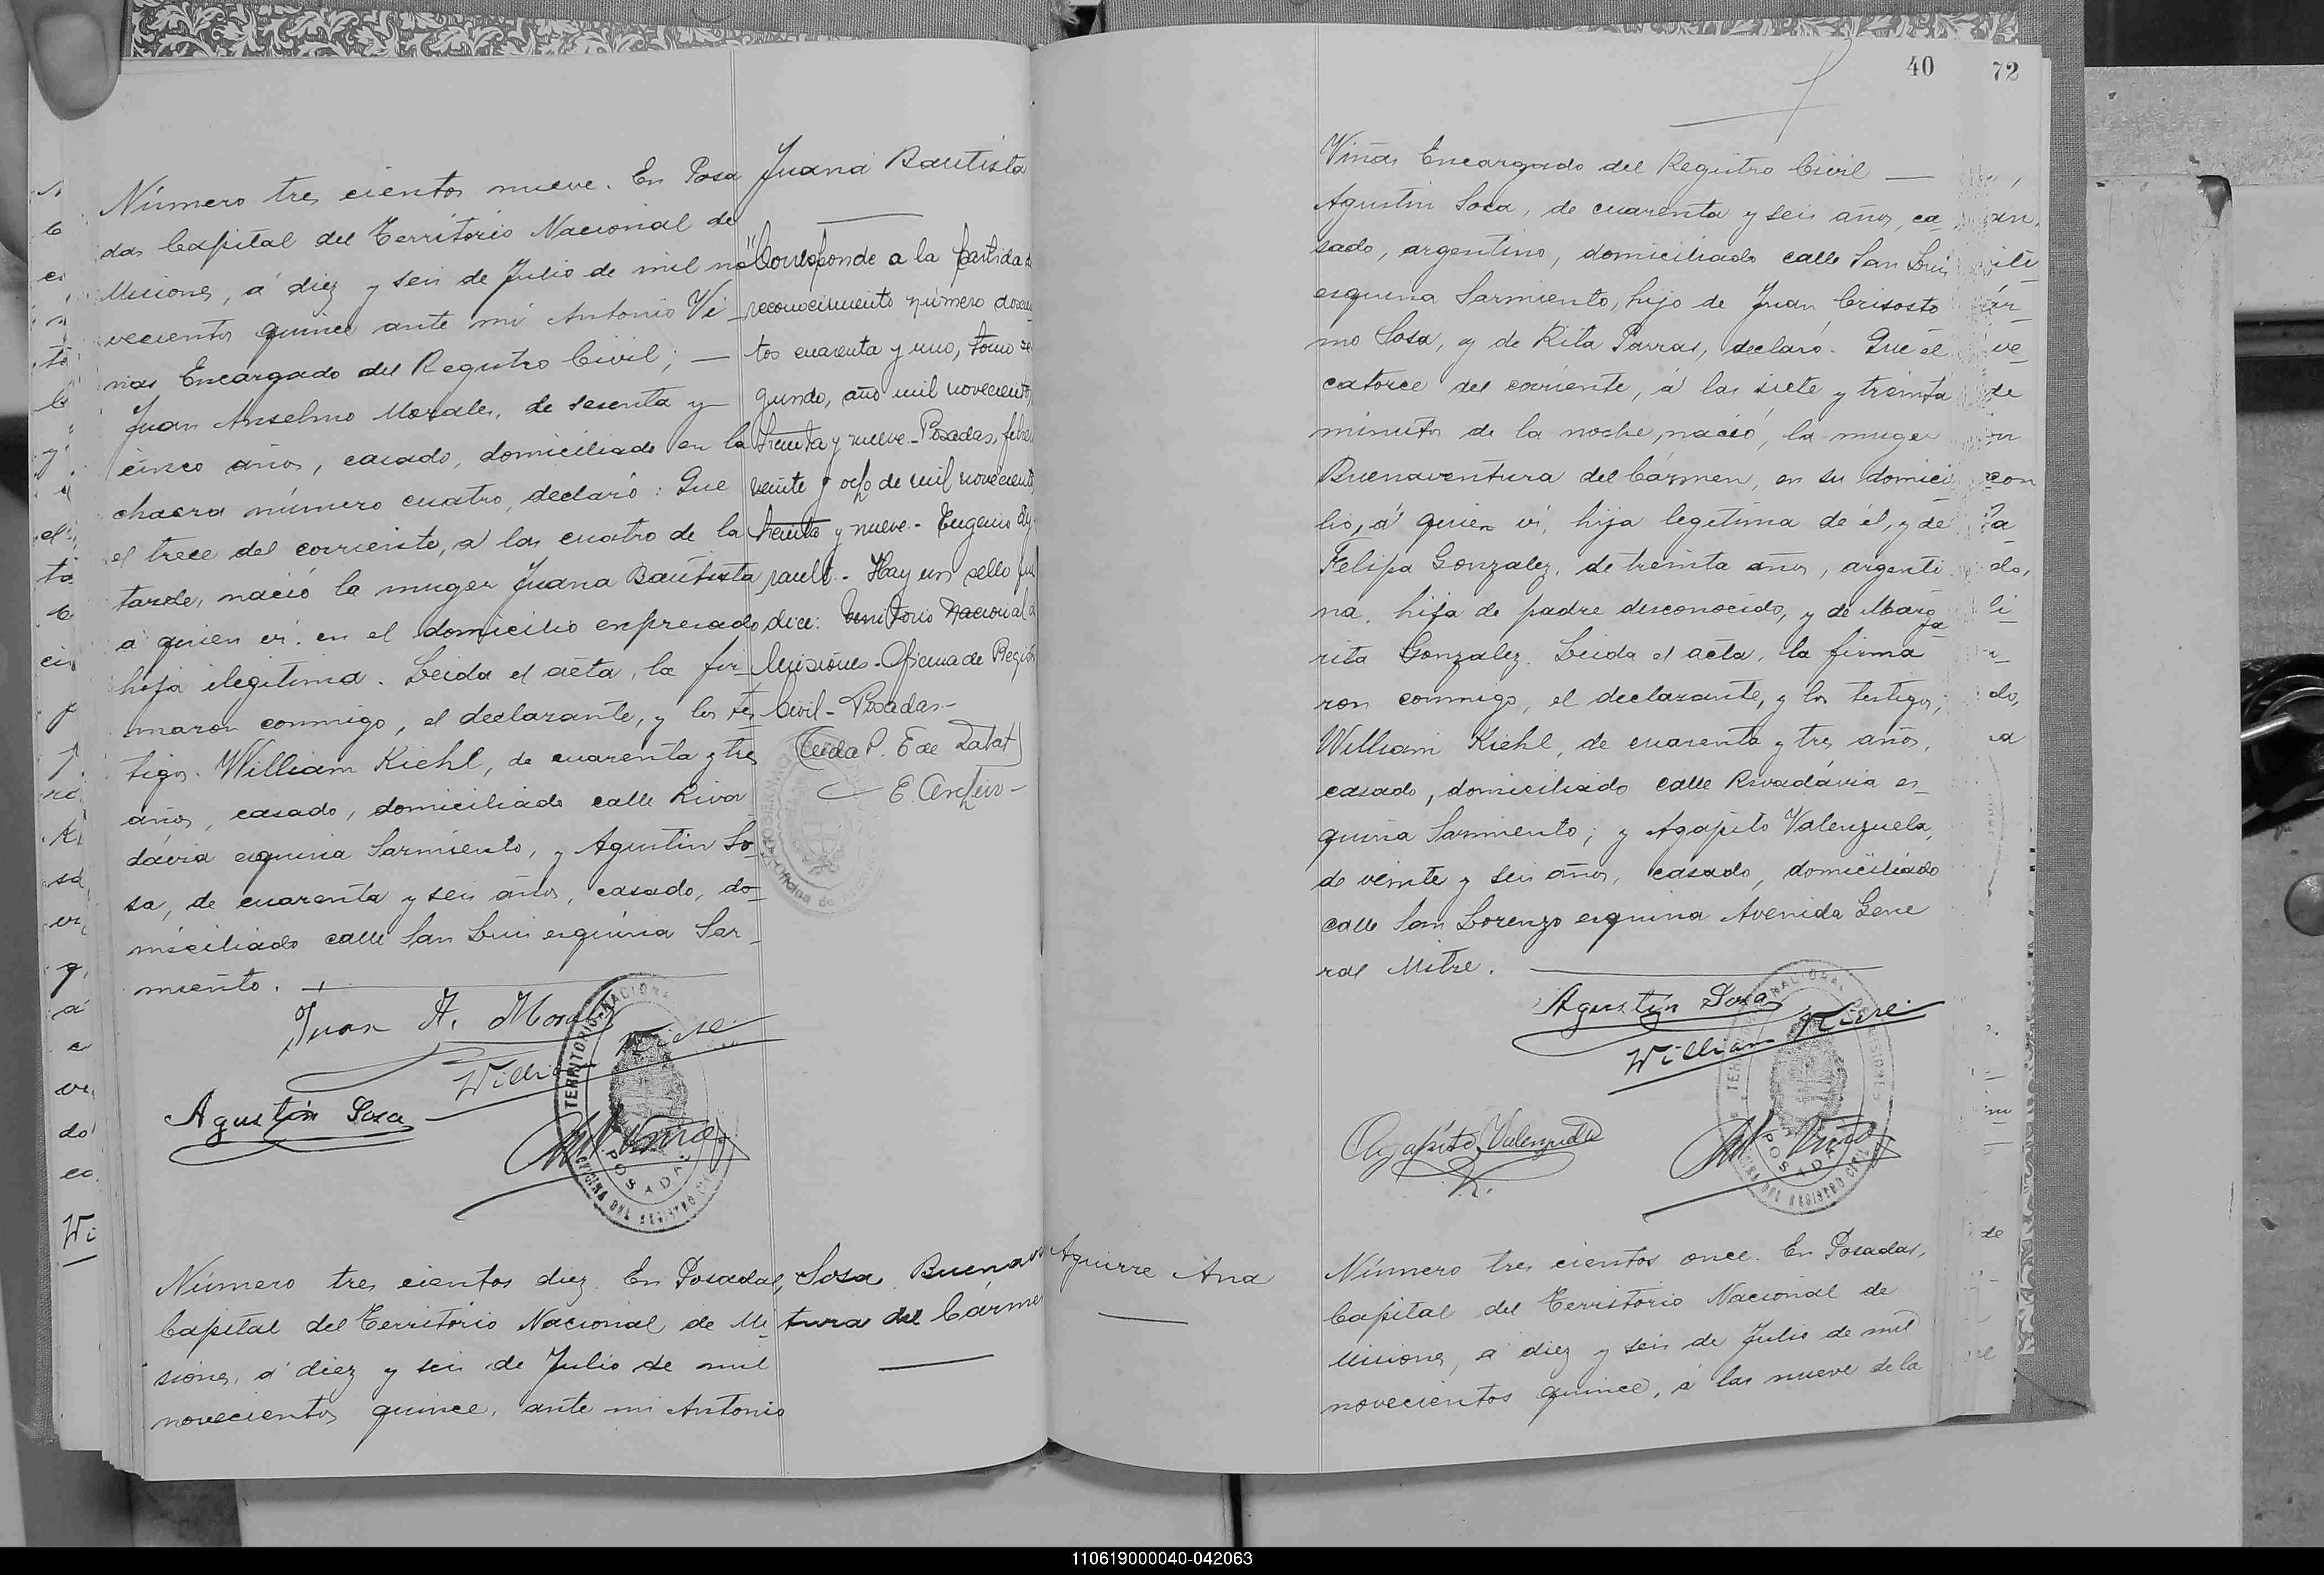 Número tres cientos nueve. En Posa
das Capital del Territorio Nacional de
Misiones, á diez y seis de Julio de mil no
vecientos quince ante mi Antonio Vi
ñas Encargado del Registro Civil; —
Juan Anselmo Morales, de sesenta y
cinco años, casado, domiciliado en la
chacra número cuatro, declaró: Que
el trece del corriente, á las cuatro de la
tarde, nació la muger Juana Bautista
á quien ví. en el domicilio expresado
hija ilegítima. Leida el acta, la fir-
maron conmigo, el declarante, y los tes
tigos. William Kiehl, de cuarenta y tres
años, casado, domiciliado calle Riva
dávia esquina Sarmiento, y Agustin So-
sa, de cuarenta y seis años, casado, do-
miciliado calle San Luis esquina Sar-
miento.
Juan A. Morales
William Kiehl
Agustin Sosa
Viñas
TERRITORIO NACIONAL
POSADAS
OFICINA DEL REGISTRO CIVIL
Juana Bautista
"Corresponde a la partida de
reconocimiento número doscien
tos cuarenta y uno, tomo se
gundo, año mil novecientos
treinta y nueve - Posadas, febre
veinte y ocho de mil novecientos
treinta y nueve - Eugenio
Hay un sello que
dice: Territorio Nacional de
Misiones - Oficina de Regist
Civil - Posadas -
Oficina de
Número tres cientos diez. En Posadas,
Capital del Territorio Nacional de Mi
siones, á diez y seis de Julio de mil
novecientos quince, ante mi Antonio
Sosa Buenaven
tura del Cármen
40 72
Viñas Encargado del Registro Civil —
Agustin Sosa, de cuarenta y seis años, ca-
sado, argentino, domiciliado calle San Luis
esquina Sarmiento, hijo de Juan Crisosto
mo Sosa, y de Rita Parras, declaró. Que el
catorce del corriente, á las siete y treinta
minutos de la noche, nació, la muger
Buenaventura del Cármen, en su domici
lio, á quien ví, hija legítima de él, y de
Felipa Gonzalez, de treinta años, argenti
na, hija de padre desconocido, y de Marga
rita Gonzalez. Leida el acta, la firma
ron conmigo, el declarante, y los testigos;
William Kiehl, de cuarenta y tres años,
casado, domiciliado calle Rivadávia es-
quina Sarmiento; y Agapito Valenzuela,
de veinte y seis años, casado, domiciliado
calle San Lorenzo esquina Avenida Gene
ral Mitre.
Agustin Sosa
William Kiehl
Agapito Valenzuela
Viñas
TERRITORIO NACIONAL MISIONES
POSADAS
OFICINA DEL REGISTRO CIVIL
Aguirre Ana
Número tres cientos once. En Posadas,
Capital del Territorio Nacional de
Misiones, á diez y seis de Julio de mil
novecientos quince, á las nueve de la
110619000040-042063